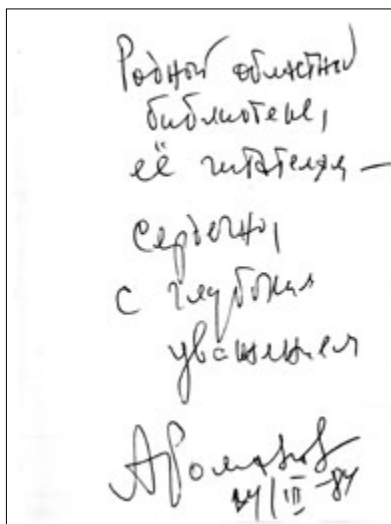 Родной областной
библиотеке,
её читателям —
сердечно,
с глубоким
уважением
АРоманов
24/III-84